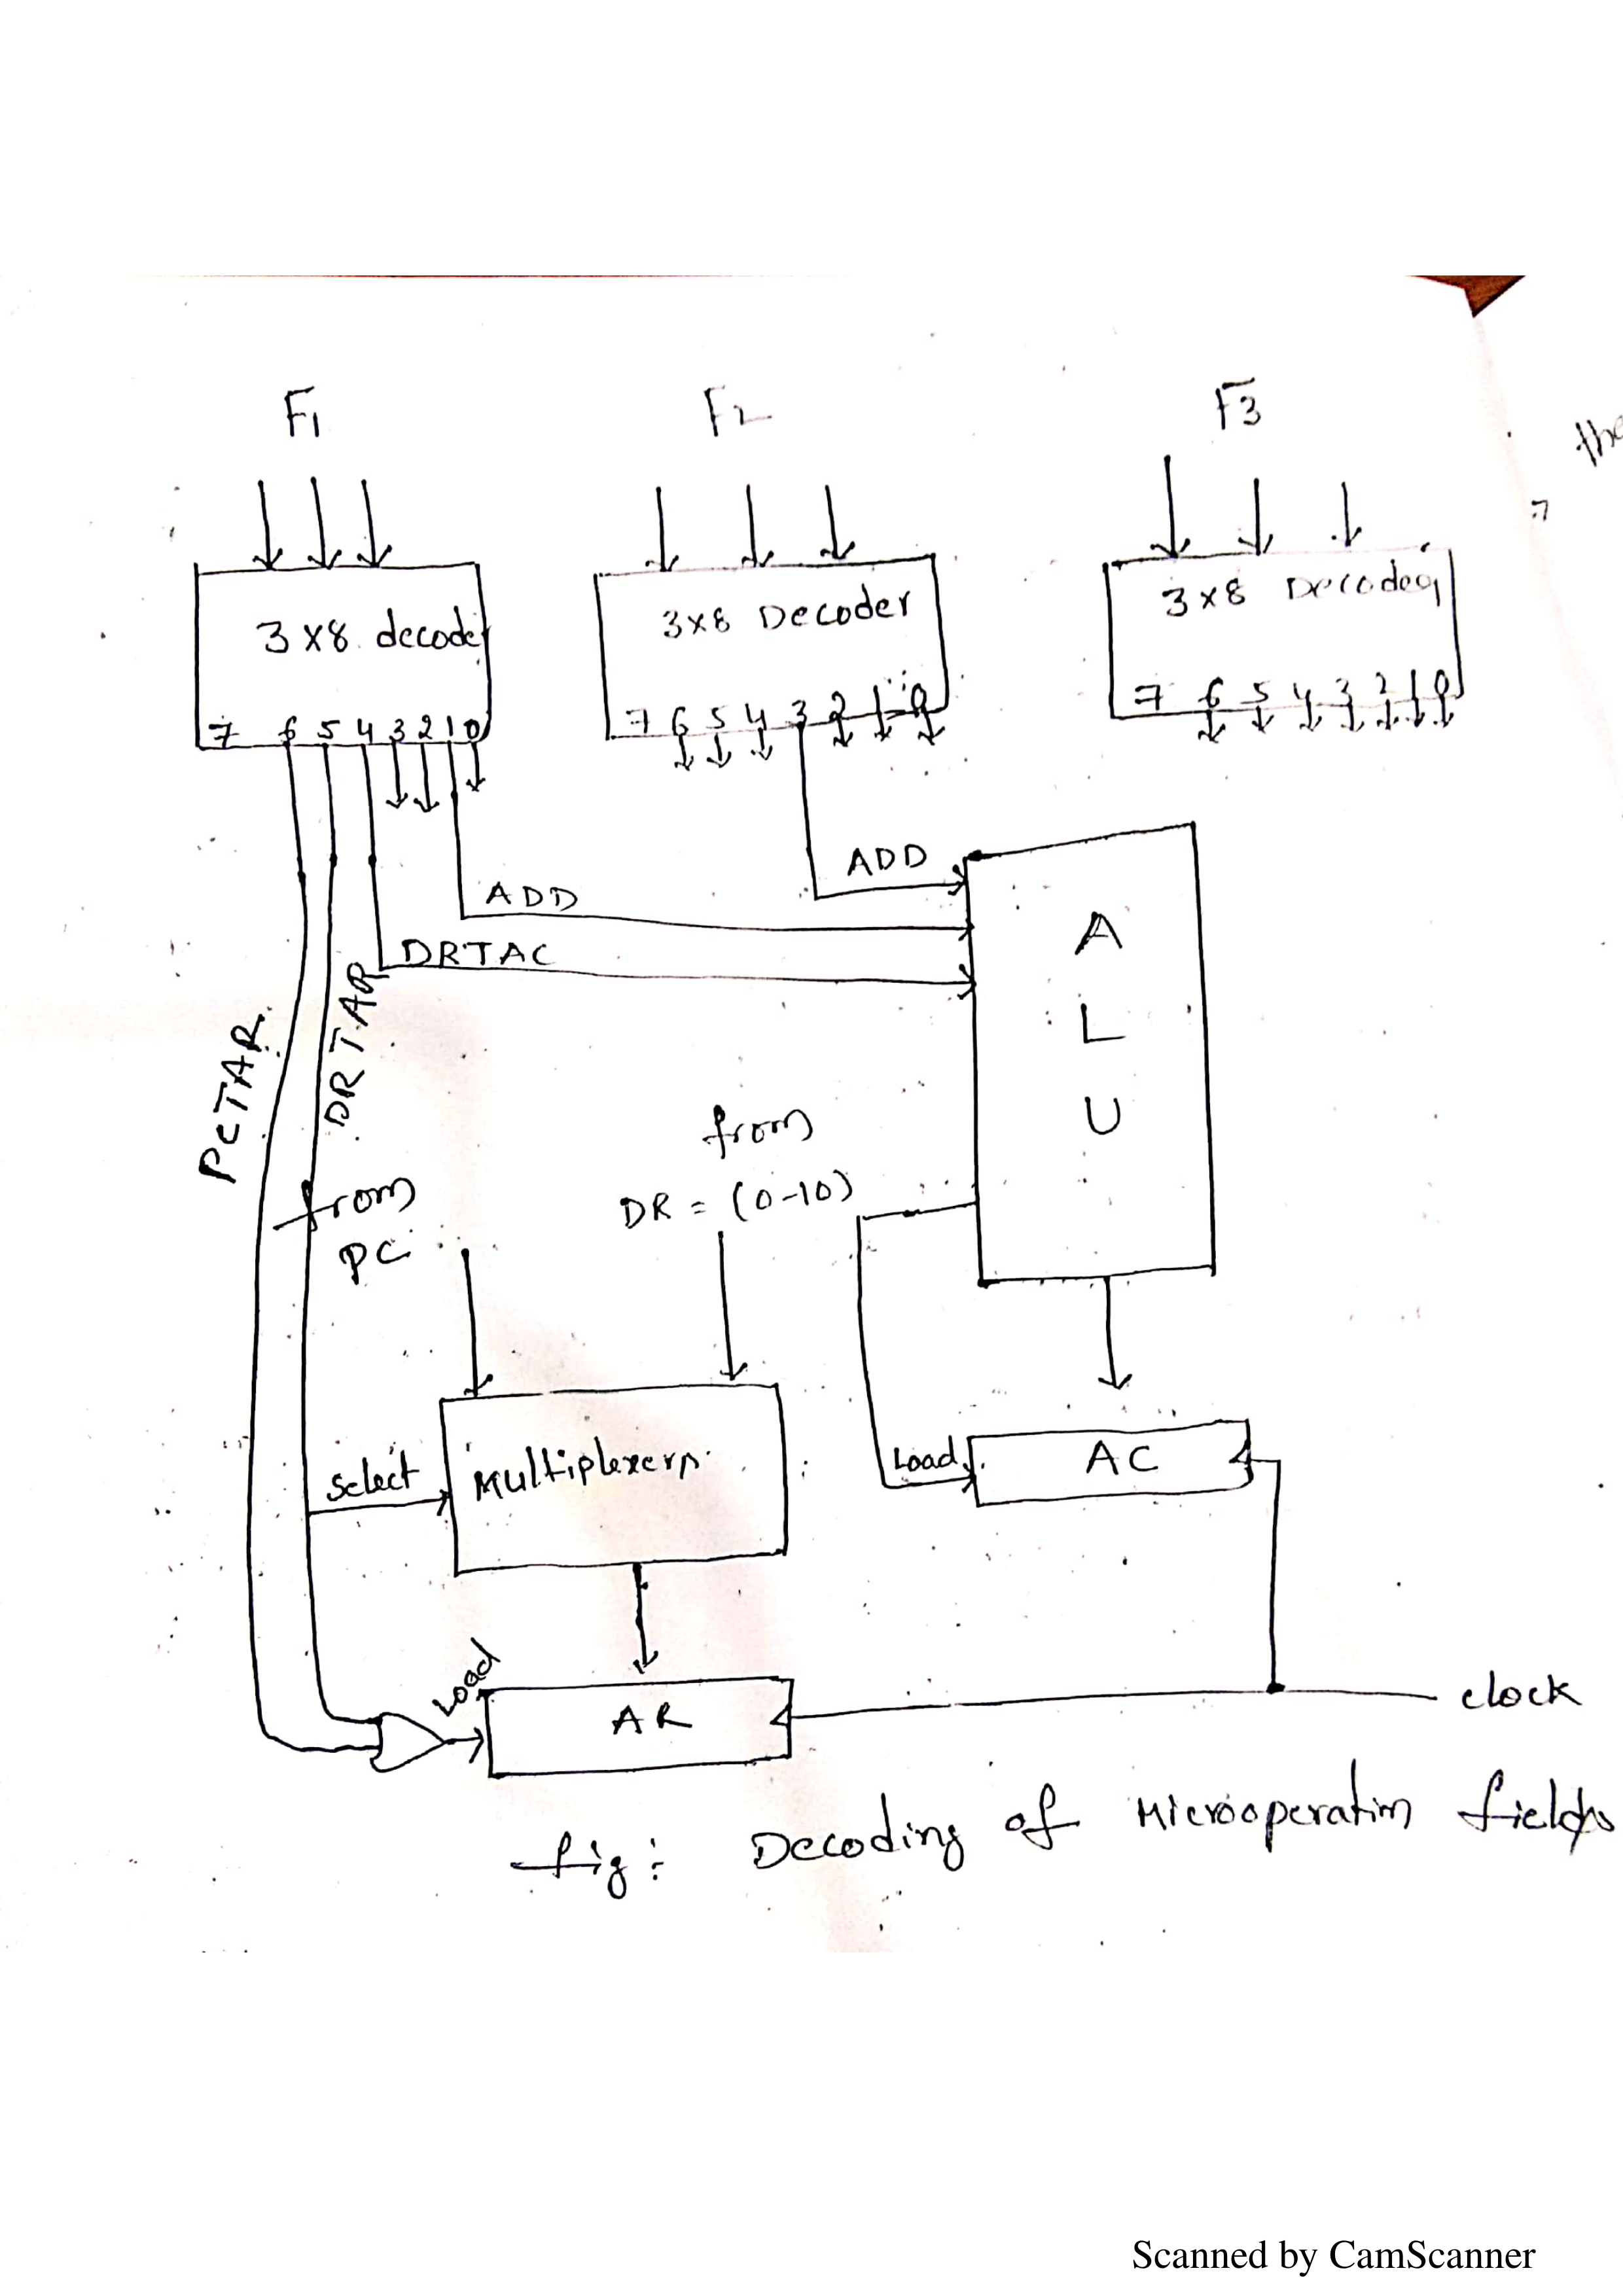 F1 F2 F3
the
3x8 decoder 3x8 Decoder 3x8 Decoder
7 6 5 4 3 2 1 0 7 6 5 4 3 2 1 0 7 6 5 4 3 2 1 0
ADD
ADD
DRTAC
A
L
U
PCTAR
DRTAR
from
PC
from
DR = (0-10)
select
Multiplexers
Load
AC
Load
AR
clock
fig: Decoding of Microoperation fields
Scanned by CamScanner